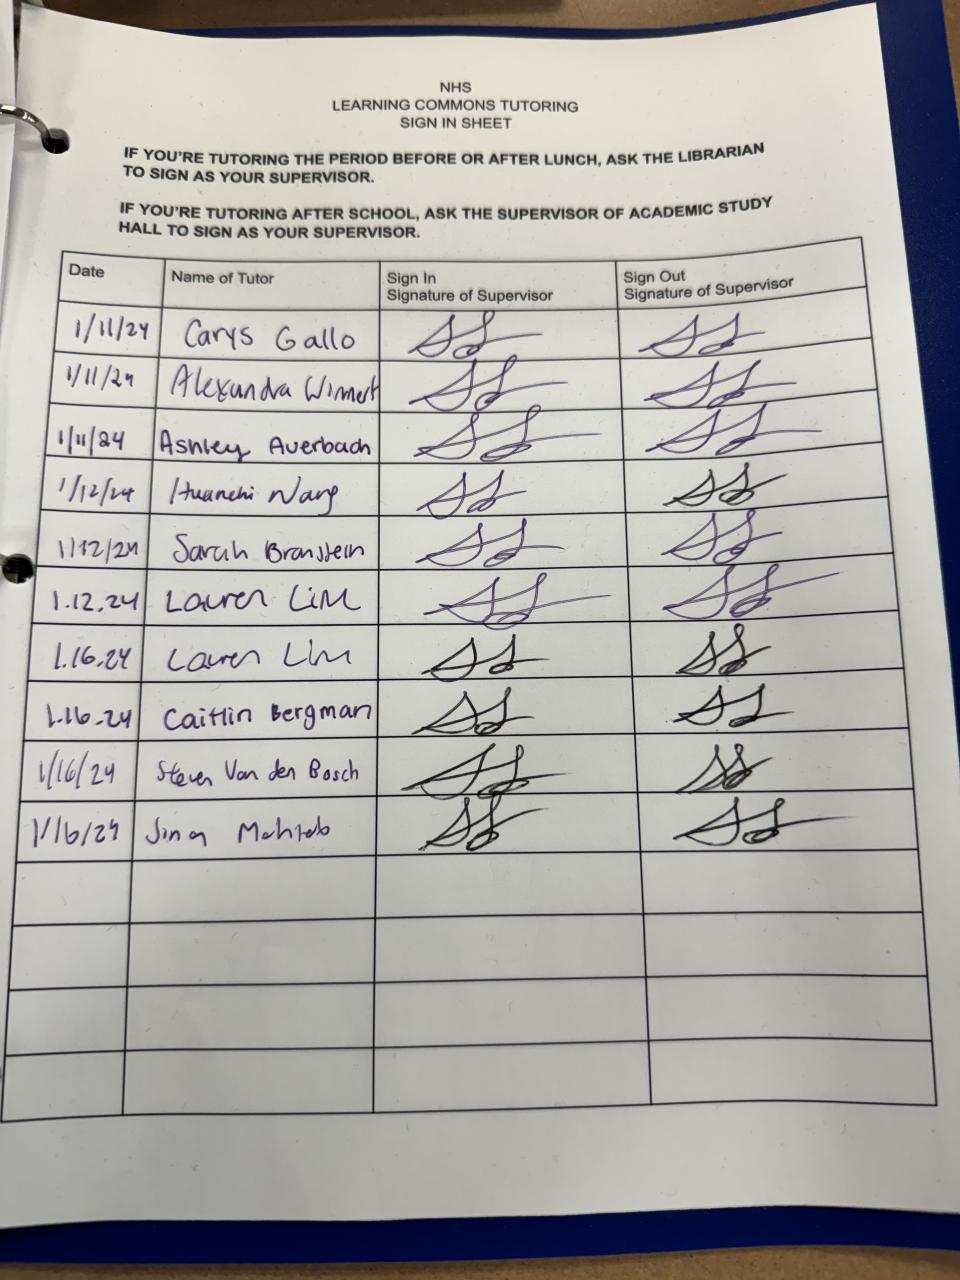 NHS
LEARNING COMMONS TUTORING
SIGN IN SHEET
IF YOU'RE TUTORING THE PERIOD BEFORE OR AFTER LUNCH, ASK THE LIBRARIAN
TO SIGN AS YOUR SUPERVISOR.
IF YOU'RE TUTORING AFTER SCHOOL, ASK THE SUPERVISOR OF ACADEMIC STUDY
HALL TO SIGN AS YOUR SUPERVISOR.
Date Name of Tutor Sign In Signature of Supervisor Sign Out Signature of Supervisor
1/11/24 Carys Gallo
1/11/24 Alexandra
1/11/24 Ashley Auerbach
1/12/24
1/12/24 Sarah
1.12.24 Lauren Lim
1.16.24 Lauren Lim
1.16.24 Caitlin Bergman
1/16/24 Steven Van den Bosch
1/16/24